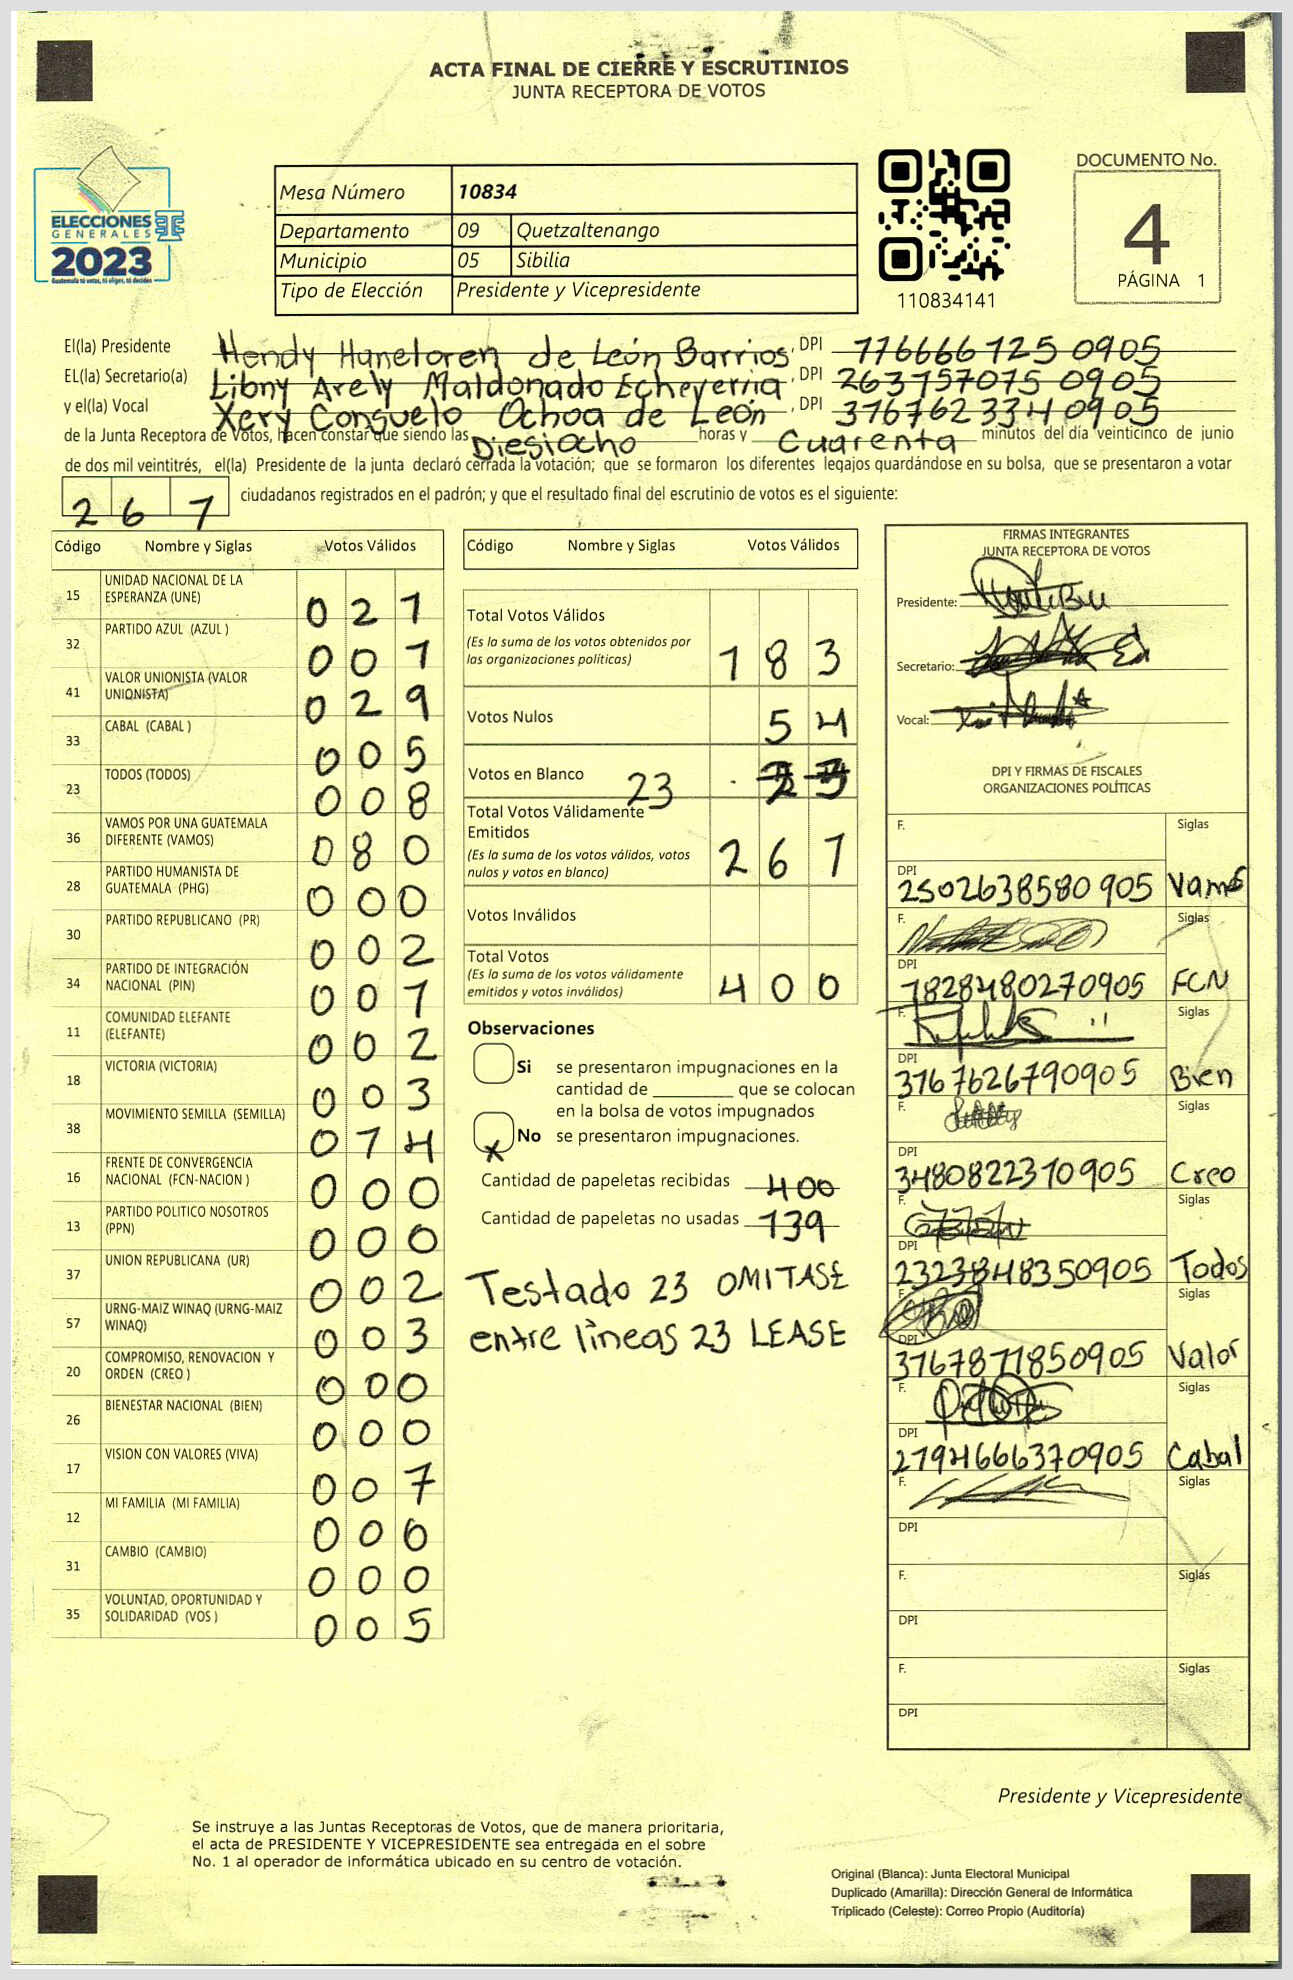 ACTA FINAL DE CIERRE Y ESCRUTINIOS
JUNTA RECEPTORA DE VOTOS
ELECCIONES
GENERALES
2023
Guatemala tú votas, tú eliges, tú decides
Mesa Número 10834
Departamento 09 Quetzaltenango
Municipio 05 Sibilia
Tipo de Elección Presidente y Vicepresidente
110834141
DOCUMENTO No.
4
PÁGINA 1
El(la) Presidente Hendy Huneloren de León Barrios, DPI 1766661250905
EL(la) Secretario(a) Libny Arely Maldonado Echeverria, DPI 2637570750905
y el(la) Vocal Xery Consuelo Ochoa de León, DPI 3767623340905
de la Junta Receptora de Votos, hacen constar que siendo las Diesiocho horas y Cuarenta minutos del día veinticinco de junio
de dos mil veintitrés, el(la) Presidente de la junta declaró cerrada la votación; que se formaron los diferentes legajos guardándose en su bolsa, que se presentaron a votar
267 ciudadanos registrados en el padrón; y que el resultado final del escrutinio de votos es el siguiente:
Código Nombre y Siglas Votos Válidos
15 UNIDAD NACIONAL DE LA ESPERANZA (UNE) 021
32 PARTIDO AZUL (AZUL ) 001
41 VALOR UNIONISTA (VALOR UNIONISTA) 029
33 CABAL (CABAL ) 005
23 TODOS (TODOS) 008
36 VAMOS POR UNA GUATEMALA DIFERENTE (VAMOS) 080
28 PARTIDO HUMANISTA DE GUATEMALA (PHG) 000
30 PARTIDO REPUBLICANO (PR) 002
34 PARTIDO DE INTEGRACIÓN NACIONAL (PIN) 001
11 COMUNIDAD ELEFANTE (ELEFANTE) 002
18 VICTORIA (VICTORIA) 003
38 MOVIMIENTO SEMILLA (SEMILLA) 014
16 FRENTE DE CONVERGENCIA NACIONAL (FCN-NACION ) 000
13 PARTIDO POLITICO NOSOTROS (PPN) 000
37 UNION REPUBLICANA (UR) 002
57 URNG-MAIZ WINAQ (URNG-MAIZ WINAQ) 003
20 COMPROMISO, RENOVACION Y ORDEN (CREO ) 000
26 BIENESTAR NACIONAL (BIEN) 000
17 VISION CON VALORES (VIVA) 007
12 MI FAMILIA (MI FAMILIA) 000
31 CAMBIO (CAMBIO) 000
35 VOLUNTAD, OPORTUNIDAD Y SOLIDARIDAD (VOS ) 005
Código Nombre y Siglas Votos Válidos
Total Votos Válidos 183
(Es la suma de los votos obtenidos por
las organizaciones políticas)
Votos Nulos 54
Votos en Blanco 23
Total Votos Válidamente
Emitidos 261
(Es la suma de los votos válidos, votos
nulos y votos en blanco)
Votos Inválidos
Total Votos 400
(Es la suma de los votos válidamente
emitidos y votos inválidos)
Observaciones
Si se presentaron impugnaciones en la
cantidad de ________ que se colocan
en la bolsa de votos impugnados
x No se presentaron impugnaciones.
Cantidad de papeletas recibidas 400
Cantidad de papeletas no usadas 139
Testado 23 OMITASE
entre líneas 23 LEASE
FIRMAS INTEGRANTES
JUNTA RECEPTORA DE VOTOS
Presidente:
Secretario:
Vocal:
DPI Y FIRMAS DE FISCALES
ORGANIZACIONES POLÍTICAS
F. Siglas
DPI 2502638580905 Vamos
F. Siglas
DPI 1828480270905 FCN
F. Siglas
DPI 3767626790905 Bien
F. Siglas
DPI 3480822310905 Creo
F. Siglas
DPI 2323848350905 Todos
F. Siglas
DPI 3767871850905 Valor
F. Siglas
DPI 2794666370905 Cabal
F. Siglas
DPI
F. Siglas
DPI
F. Siglas
DPI
Presidente y Vicepresidente
Se instruye a las Juntas Receptoras de Votos, que de manera prioritaria,
el acta de PRESIDENTE Y VICEPRESIDENTE sea entregada en el sobre
No. 1 al operador de informática ubicado en su centro de votación.
Original (Blanca): Junta Electoral Municipal
Duplicado (Amarilla): Dirección General de Informática
Triplicado (Celeste): Correo Propio (Auditoría)